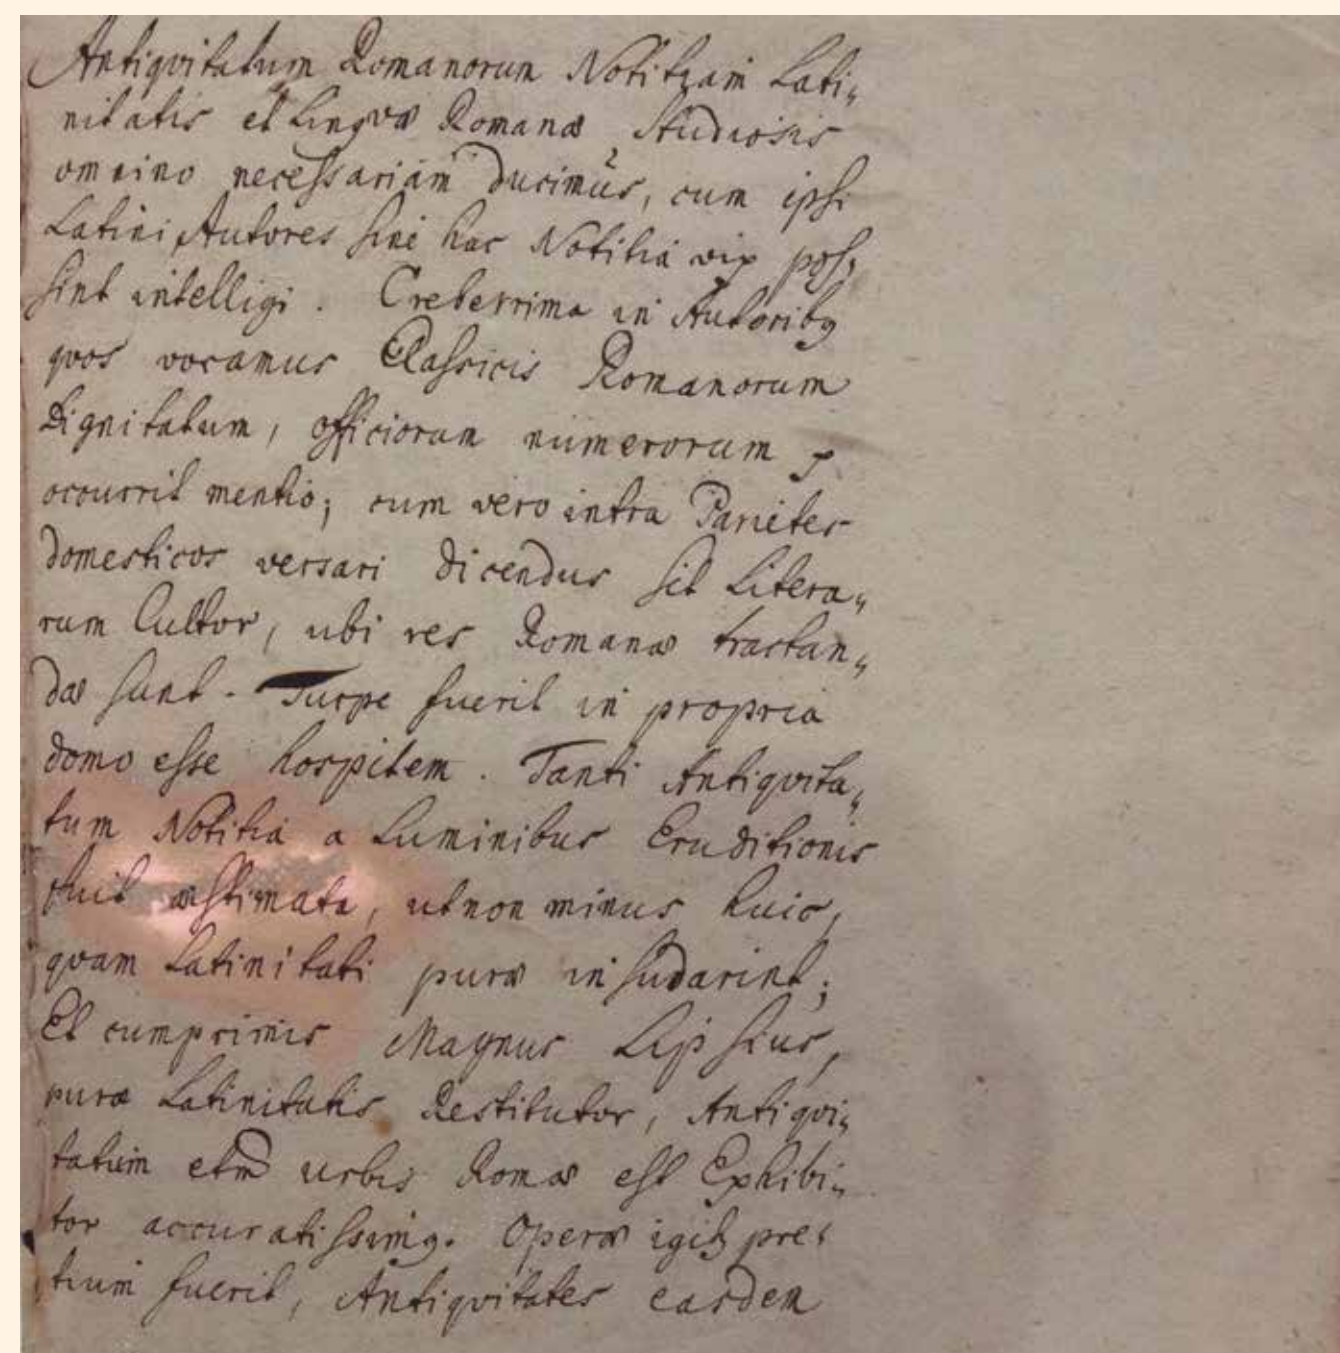 Antiqvitatum Romanorum Notitiam Lati„
nitatis et Lingvæ Romanæ Studiosis
omnino necessariam ducimus, cum ipsi
Latini Autores sine hac Notitia vix pos„
sint intelligi. Creberrima in Autoribꝯ
qvos vocamus Classicis Romanorum
Dignitatum, officiorum numerorum
occurrit mentio; cum vero intra Parietes
domesticos versari dicendus sit Litera„
rum Cultor, ubi res Romanæ tractan„
dæ sunt. Turpe fuerit in propria
domo esse hospitem. Tanti Antiqvita„
tum Notitia a Luminibus Eruditionis
fuit æstimata, ut non minus huic,
qvam Latinitati puræ insudarint;
Et cumprimis Magnus Lipsius,
puræ Latinitatis Restitutor, Antiqvi„
tatum etm̄ urbis Romæ est Exhibi„
tor accuratissimꝯ. Operæ igit᷑ pre„
tium fuerit, Antiqvitates easdem